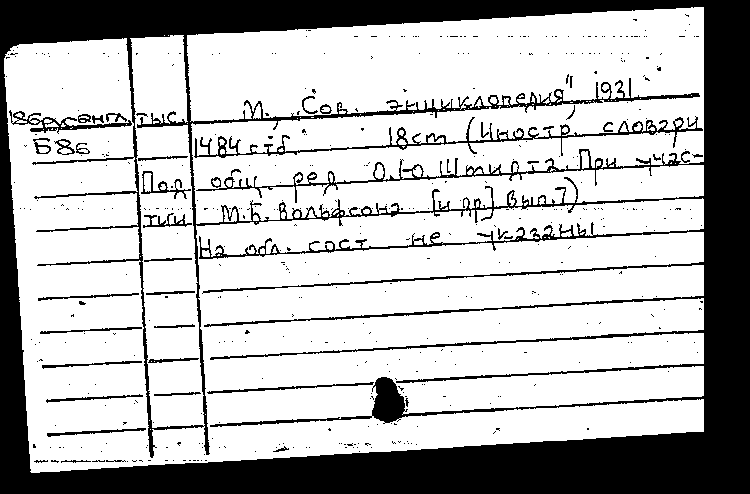 186русангл. тыс. М., „Сов. энциклопедия", 1931
Б86 1484 стб. 18cm (Иностр. словари
Под общ. ред. О.Ю. Шмидта. При учас-
тии М.Б. Вольфсона [и др.] Вып. 7).
На обл. сост не указаны